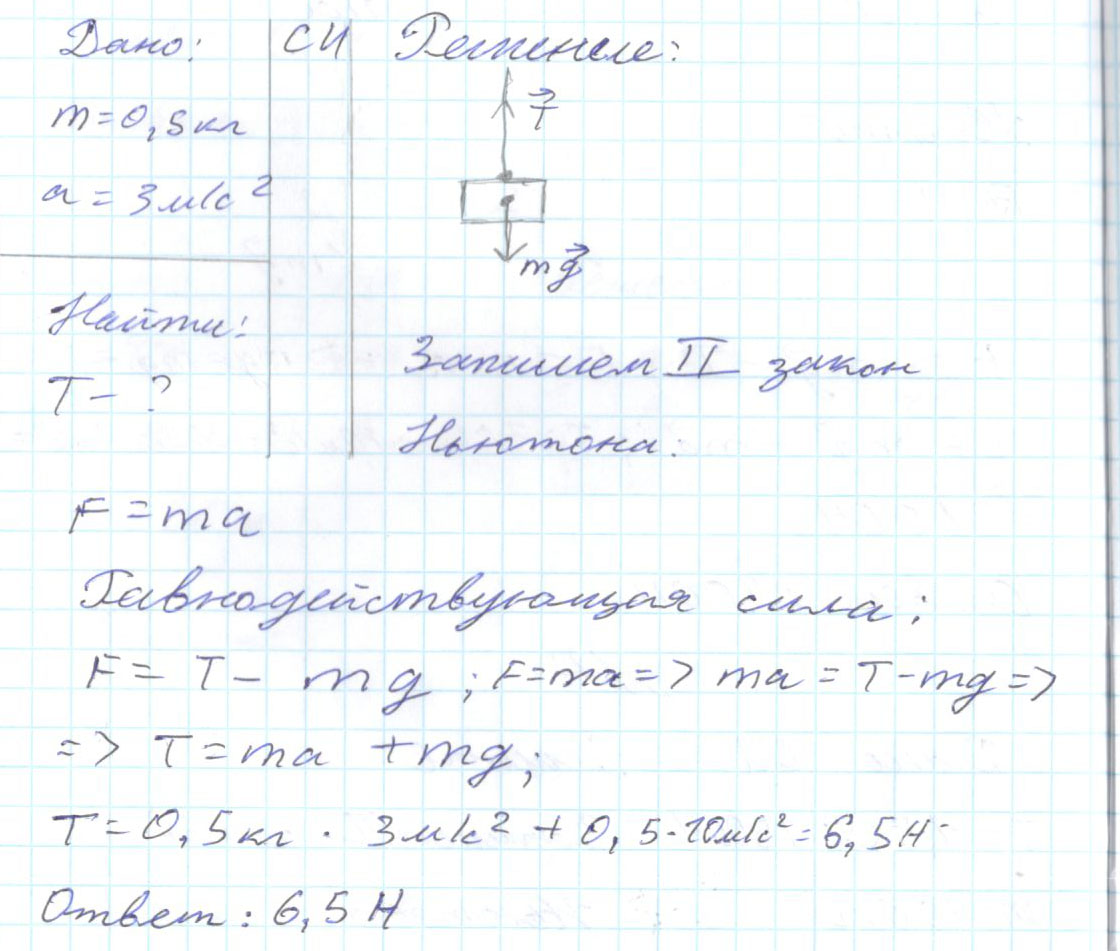 Дано: СИ Решение:
T
m=0,5кг
a = 3м/с²
mg
Найти:
Запишем II закон
T - ?
Ньютона:
F = ma
Равнодействующая сила:
F = T - mg; F=ma => ma = T-mg =>
=> T = ma + mg;
T = 0,5кг · 3м/с² + 0,5·10м/с² = 6,5Н
Ответ: 6,5 Н